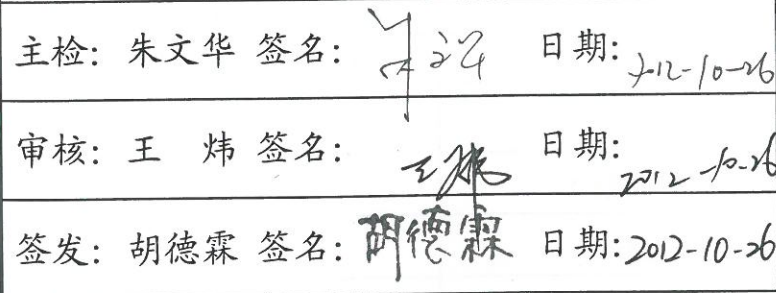 主检: 朱文华 签名: 日期: 2012-10-26
审核: 王 炜 签名: 王炜 日期: 2012-10-26
签发: 胡德霖 签名: 胡德霖 日期: 2012-10-26